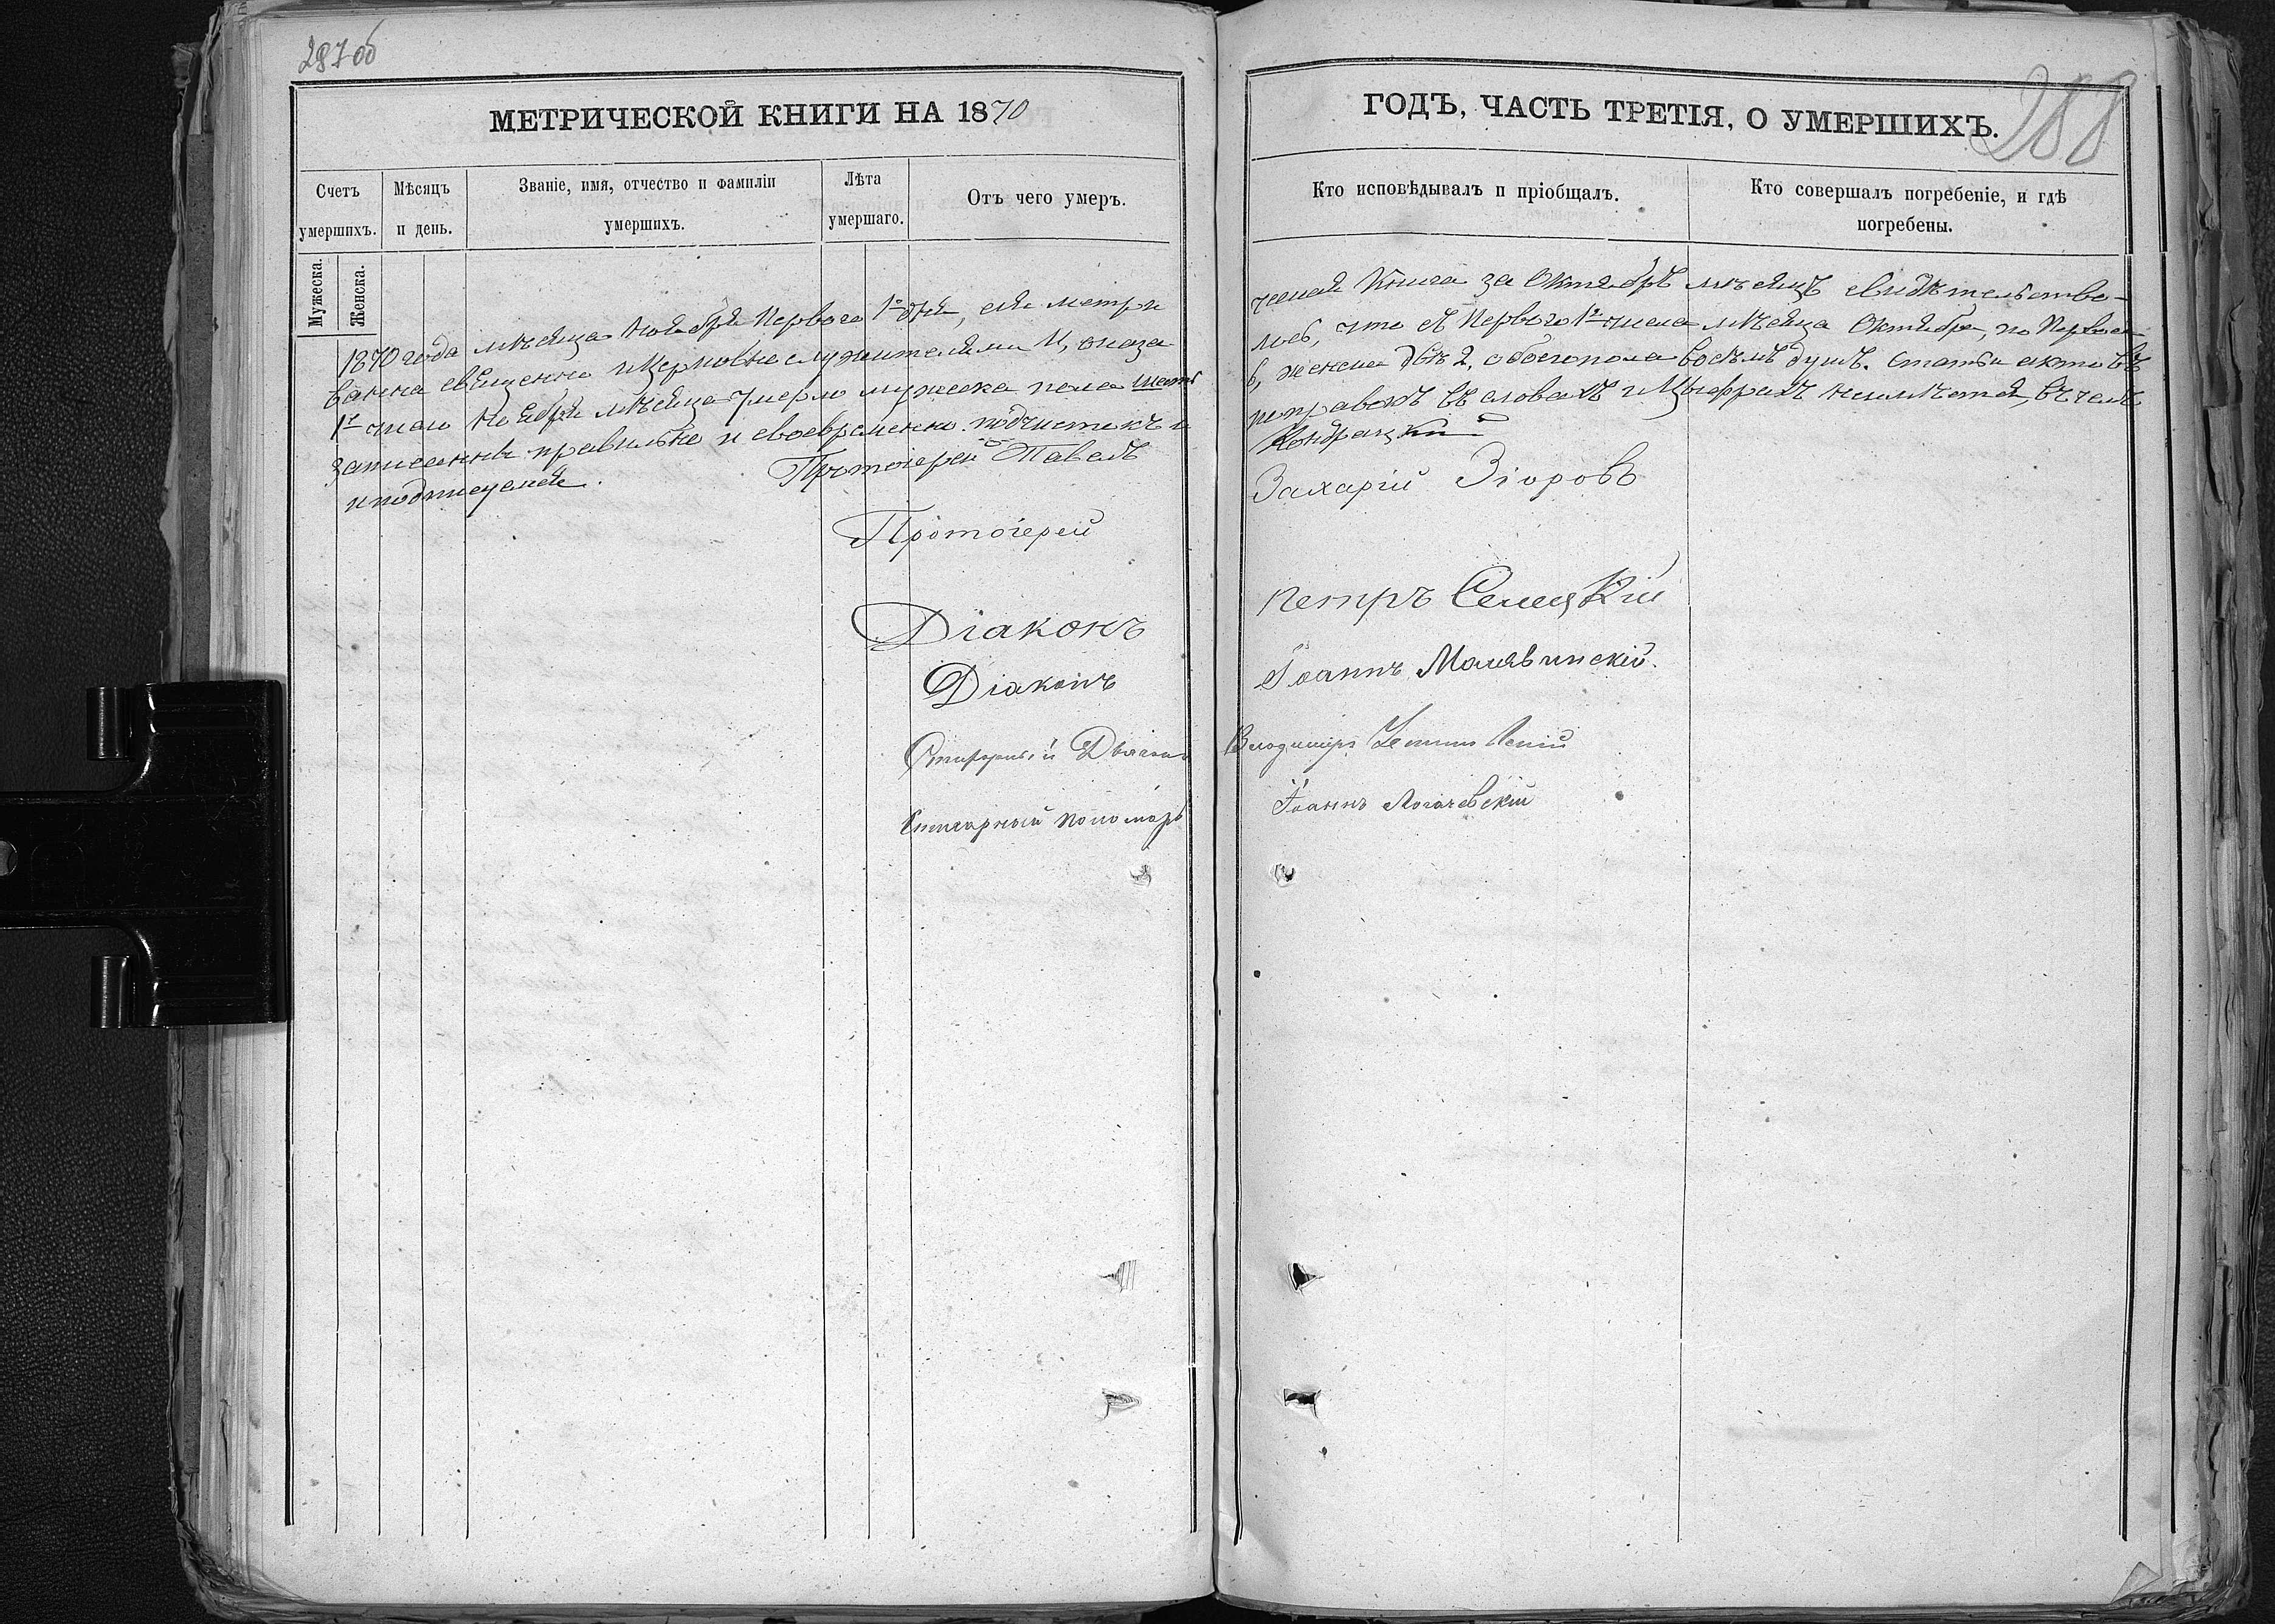 287 об
МЕТРИЧЕСКОЙ КНИГИ НА 1870
Счетъ умершихъ.
Мѣсяцъ и день.
Званіе, имя, отчество и фамиліи умершихъ.
Лѣта умершаго.
Отъ чего умеръ.
Мужеска.
Женска.
1870 года мѣсяца Ноября Перваго 1го дня, сія метри
ванна священно и церковнослужителями И, оказа
1е число Ноября мѣсяца умерло мужеска пола шесть
записанны правильно и своевременно подчистокъ и
и подписуемся.
Протоіерей Павелъ
Протоіерей
Діаконъ
Діаконъ
Стихарный Дьячокъ
Стихарный пономарь
288
ГОДЪ, ЧАСТЬ ТРЕТІЯ, О УМЕРШИХЪ.
Кто исповѣдывалъ и пріобщалъ.
Кто совершалъ погребеніе, и гдѣ погребены.
ческая Книга за Октябрь мѣсяцъ свидѣтельство-
лось, что съ Перваго 1го числа мѣсяца Октября, по Первое
6, женска двѣ 2, обоего пола восемь душъ. Статьи актовъ
поправокъ въ словахъ и Цыфрахъ неимѣется, въ чемъ
Кондрацкій
Захарій
Петръ Селецкій
Іоаннъ Малявинскій.
Владимиръ
Іоаннъ Логачевскій